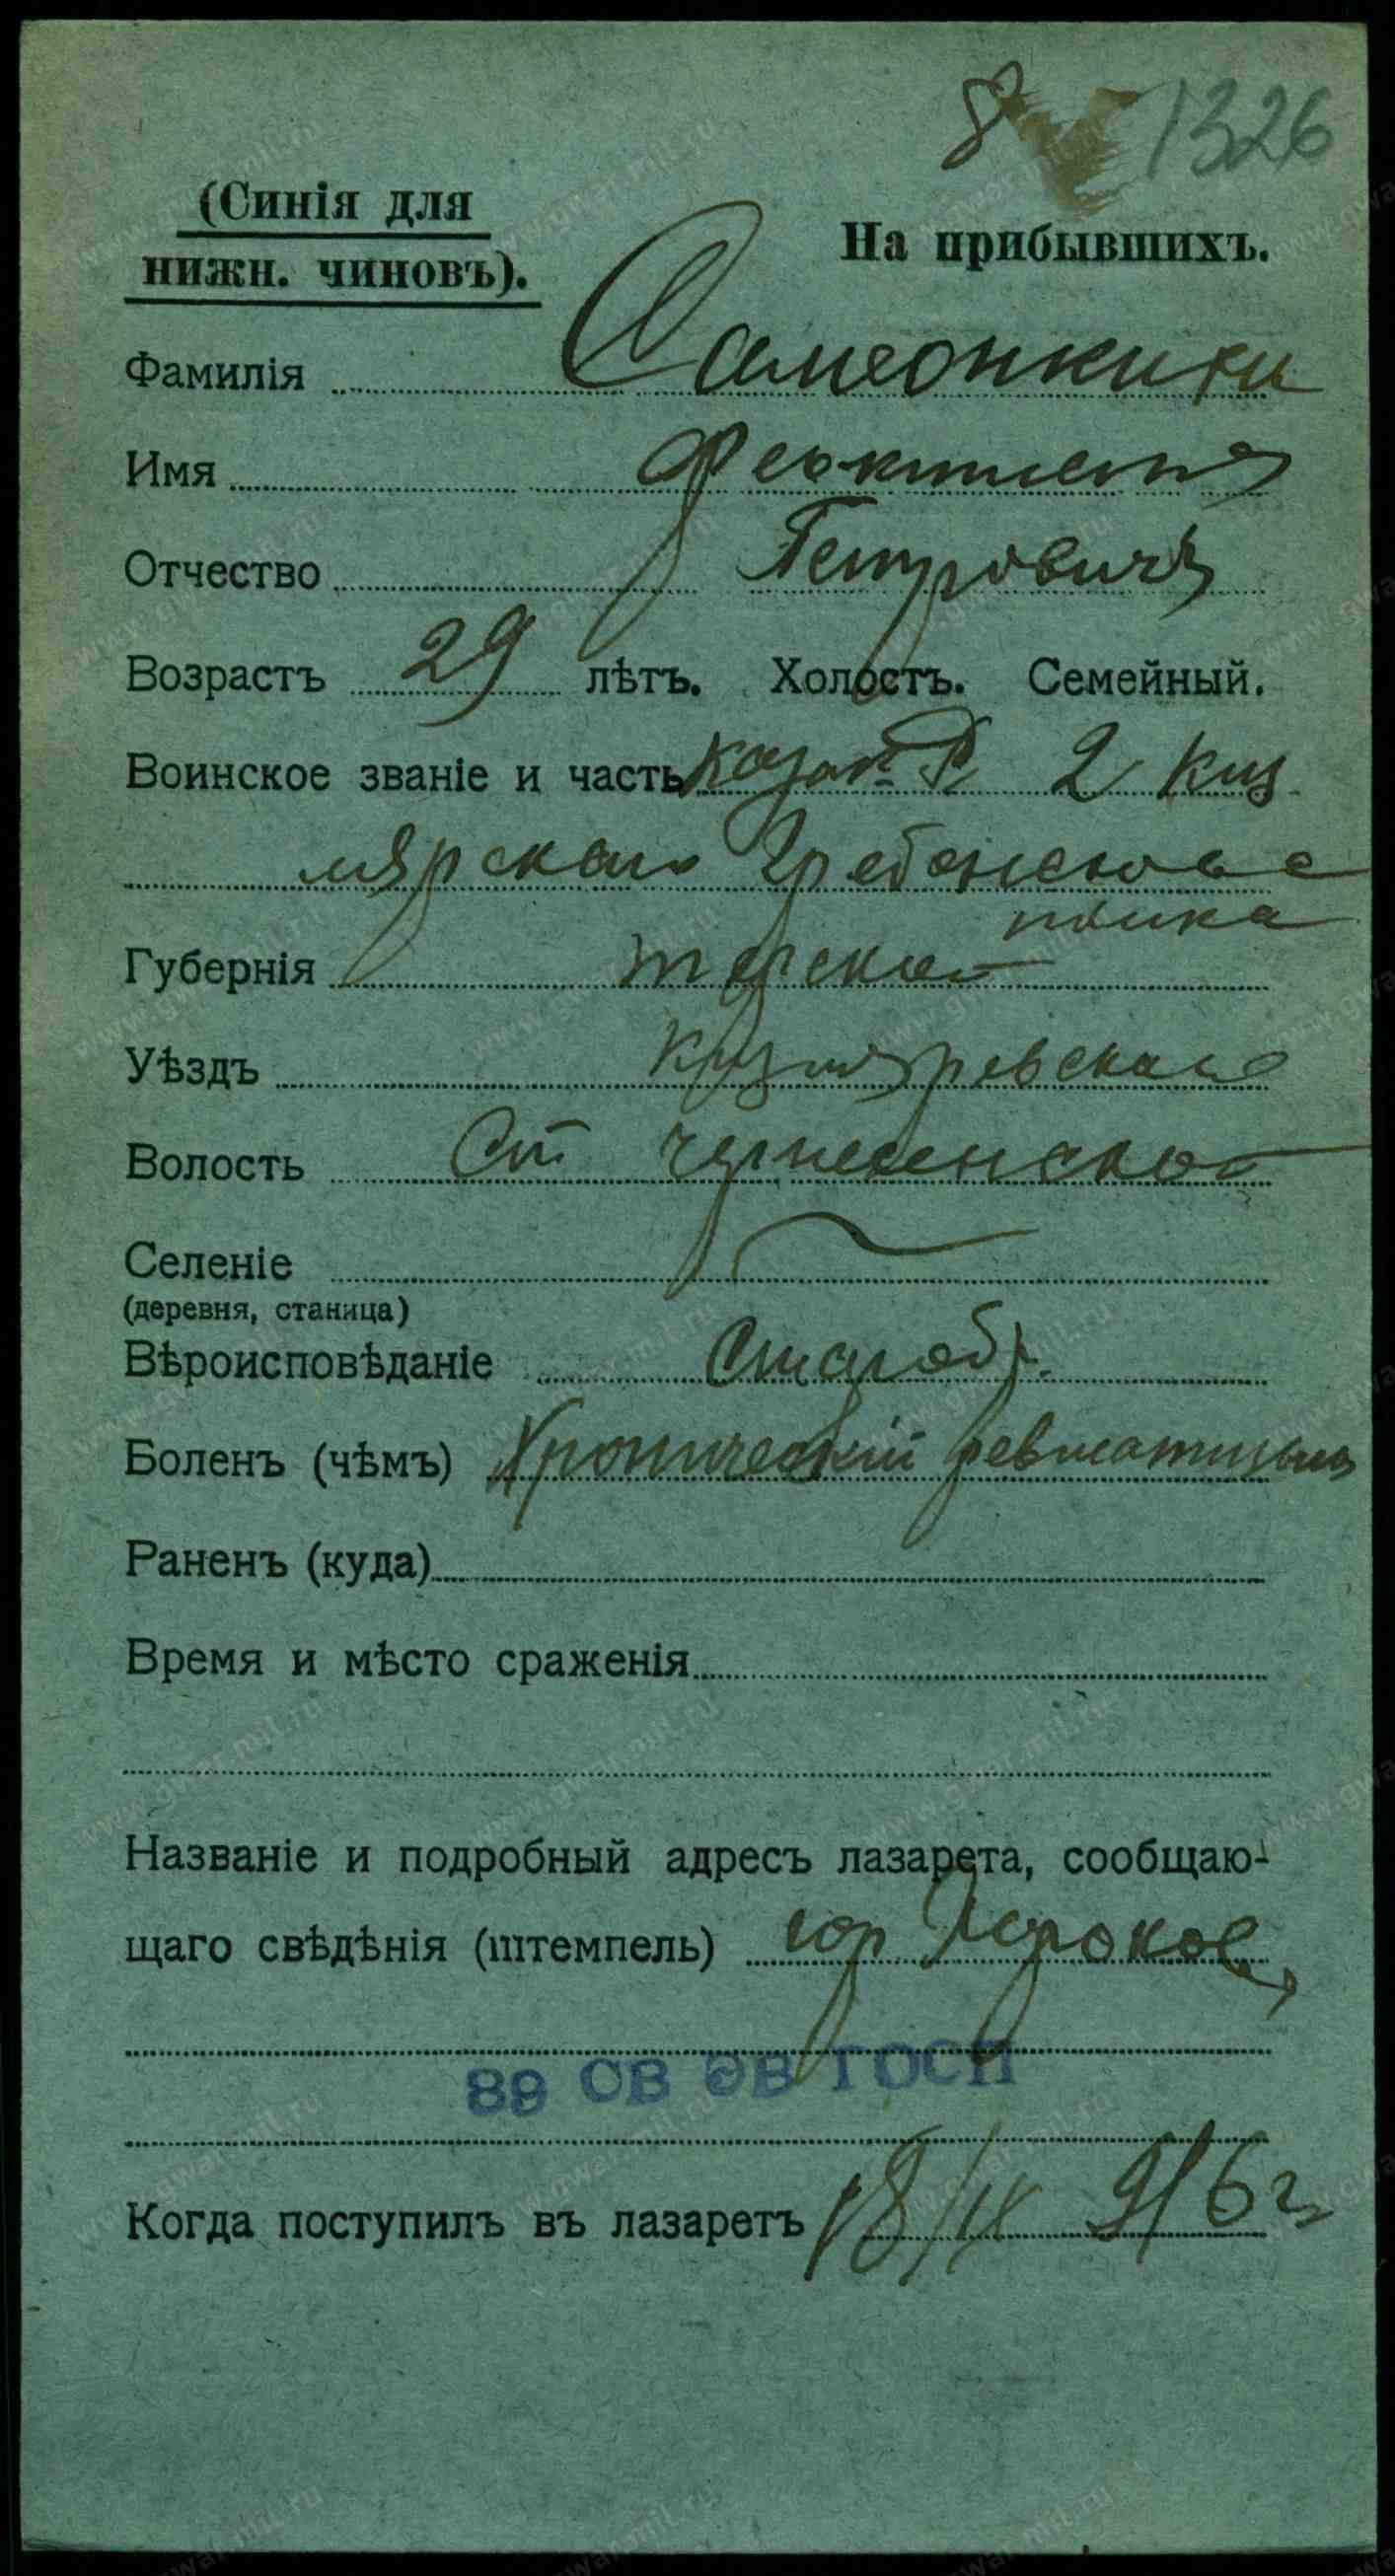 8 1326
(Синія для
нижн. чиновъ).
На прибывшихъ.
Фамилія
Имя Феоктистъ
Отчество Петровичъ
Возрастъ 29 лѣтъ. Холостъ. Семейный.
Воинское званіе и часть казакъ 2 Киз
лярскаго Гребенскова
полка
Губернія Терской
Уѣздъ
Волость Ст
Селеніе
(деревня, станица)
Вѣроисповѣданіе Старобр.
Боленъ (чѣмъ) Хроническій ревматизмъ
Раненъ (куда)
Время и мѣсто сраженія
Названіе и подробный адресъ лазарета, сообщаю-
щаго свѣдѣнія (штемпель) гор
89 СВ ЭВ ГОСП
Когда поступилъ въ лазаретъ 916 г